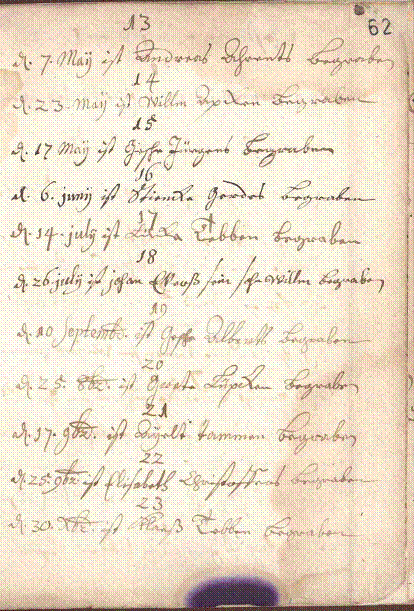 62
13
d. 7. Maÿ ist Andreas Ahrents begraben
14
d. 23. Maÿ ist Willm begraben
15
d. 17 Maÿ ist Geshe Jürgens begraben
16
d. 6. junÿ ist Stiencke Gerdes begraben
17
d. 14. julÿ ist Tebben begraben
18
d. 26. julÿ ist johan sein sohn Willm begraben
19
d. 10 Septembr. ist Geshe Alberts begraben
20
d. 25. 8br. ist Greta begraben
21
d. 17. 9br. ist tammen begraben
22
d. 25. 9br. ist Elisabeth Christoffers begraben
23
d. 30. ist Klaaß Tebben begraben